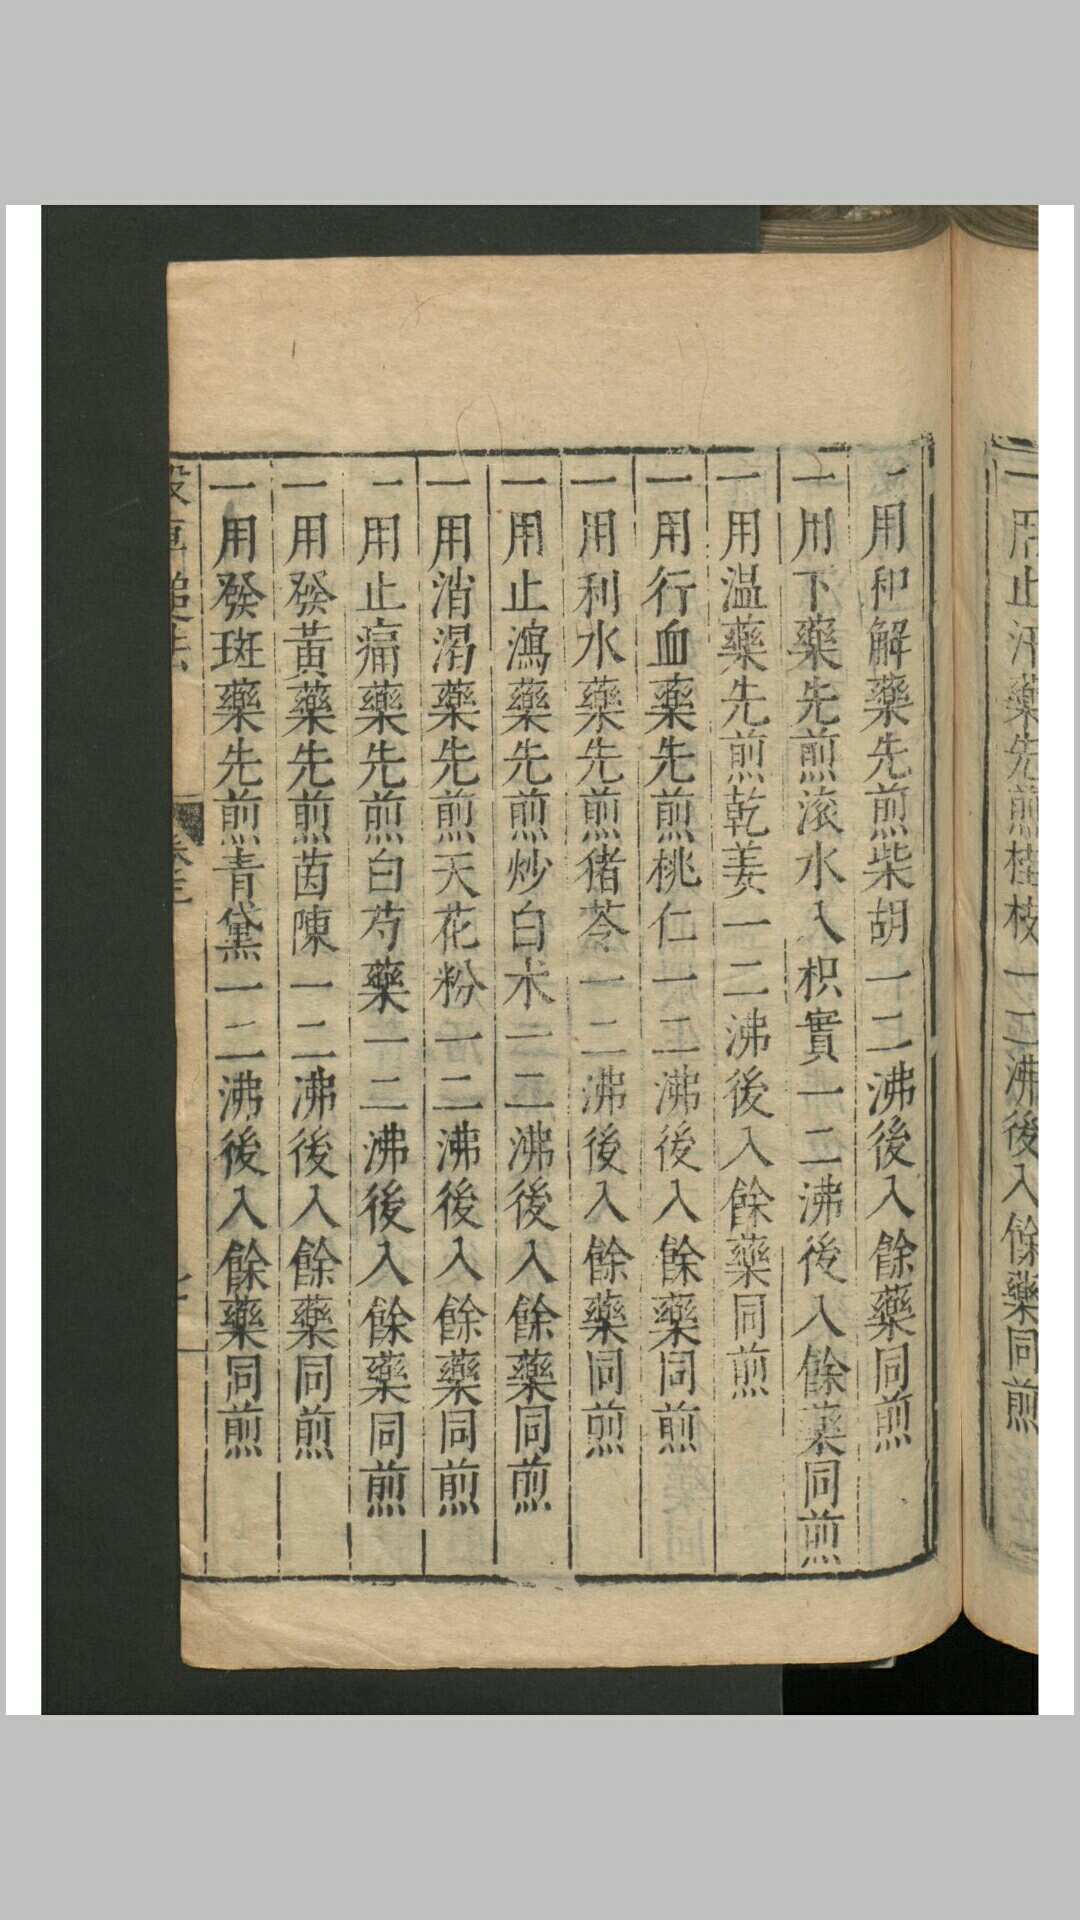 一用止汗藥先煎桂枝一二沸後入餘藥同煎
一用和解藥先煎柴胡一二沸後入餘藥同煎
一用下藥先煎滾水入枳實一二沸後入餘藥同煎
一用温藥先煎乾姜一二沸後入餘藥同煎
一用行血藥先煎桃仁一二沸後入餘藥同煎
一用利水藥先煎猪苓一二沸後入餘藥同煎
一用止瀉藥先煎炒白朮一二沸後入餘藥同煎
一用消渴藥先煎天花粉一二沸後入餘藥同煎
一用止痛藥先煎白芍藥一二沸後入餘藥同煎
一用發黃藥先煎茵陳一二沸後入餘藥同煎
一用發斑藥先煎青黛一二沸後入餘藥同煎